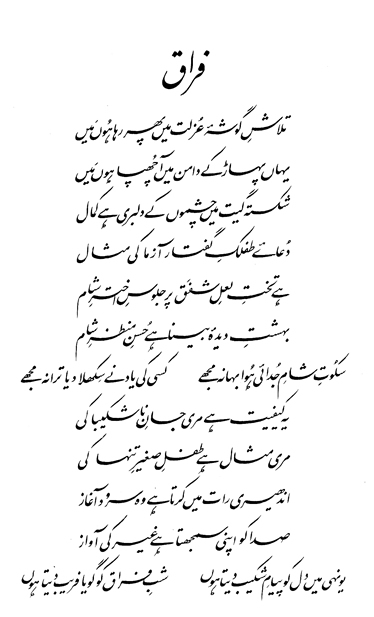 فراق
تلاشِ گوشۂ عُزلت میں پھر رہا ہُوں مَیں
یہاں پہاڑ کے دامن میں آ چُھپا ہوں مَیں
شکستہ گیت میں چشموں کے دلبری ہے کمال
دُعائے طفلکِ گفتار آزما کی مثال
ہے تختِ لعلِ شفَق پر جلوسِ اخترِ شام
بہشتِ دیدۂ بینا ہے حُسنِ منظرِ شام
سکُوتِ شامِ جُدائی ہُوا بہانہ مجھے کسی کی یاد نے سِکھلا دیا ترانہ مجھے
یہ کیفیت ہے مری جانِ ناشکیبا کی
مری مثال ہے طفلِ صغیرِ تنہا کی
اندھیری رات میں کرتا ہے وہ سرود آغاز
صدا کو اپنی سمجھتا ہے غیر کی آواز
یونہی میں دل کو پیامِ شکیب دیتا ہوں شبِ فراق کو گویا فریب دیتا ہوں